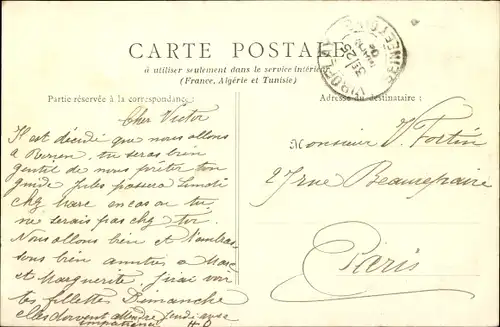 CARTE POSTALE
à utiliser seulement dans le service intérieur
(France, Algérie et Tunisie)
Partie réservée à la correspondance:
Adresse du destinataire:
Cher Victor
Il est décidé que nous allons
a tu seras bien
gentil de nous prêter ton
guide Jules passera Lundi
chez en cas ou tu
ne serais pas chez toi.
Nous allons bien et t'embras
sons bien amitiés a
et Marguerite j'irai voir
tes fillettes Dimanche
elles doivent attendre jeudi avec
impatience H D
Monsieur V. Fortin
27 rue Beaurepaire
Paris